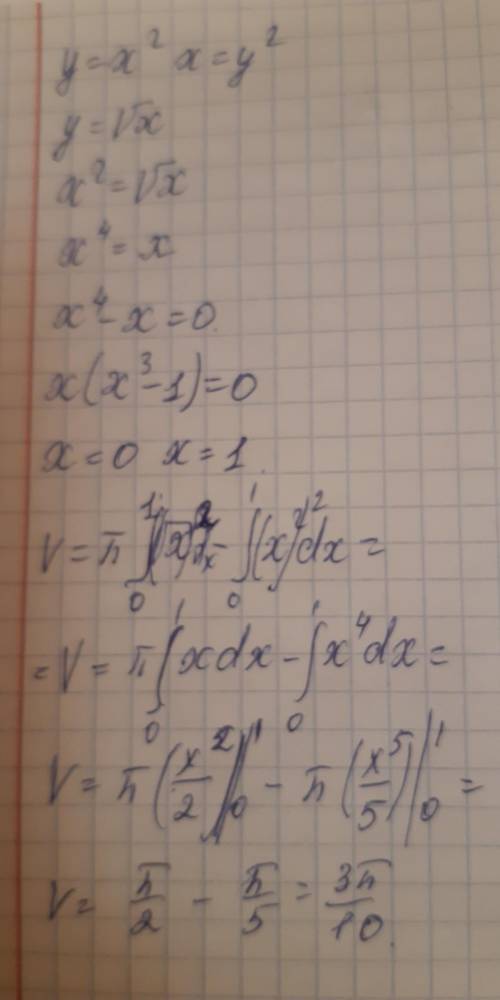 y = x² x = y²
y = √x
x² = √x
x⁴ = x
x⁴ - x = 0
x(x³ - 1) = 0
x = 0 x = 1
V = π ∫₀¹ (√x)² dx - ∫₀¹ (x²)² dx =
= V = π ∫₀¹ x dx - ∫₀¹ x⁴ dx =
V = π (x²/2)|₀¹ - π (x⁵/5)|₀¹ =
V = π/2 - π/5 = 3π/10.